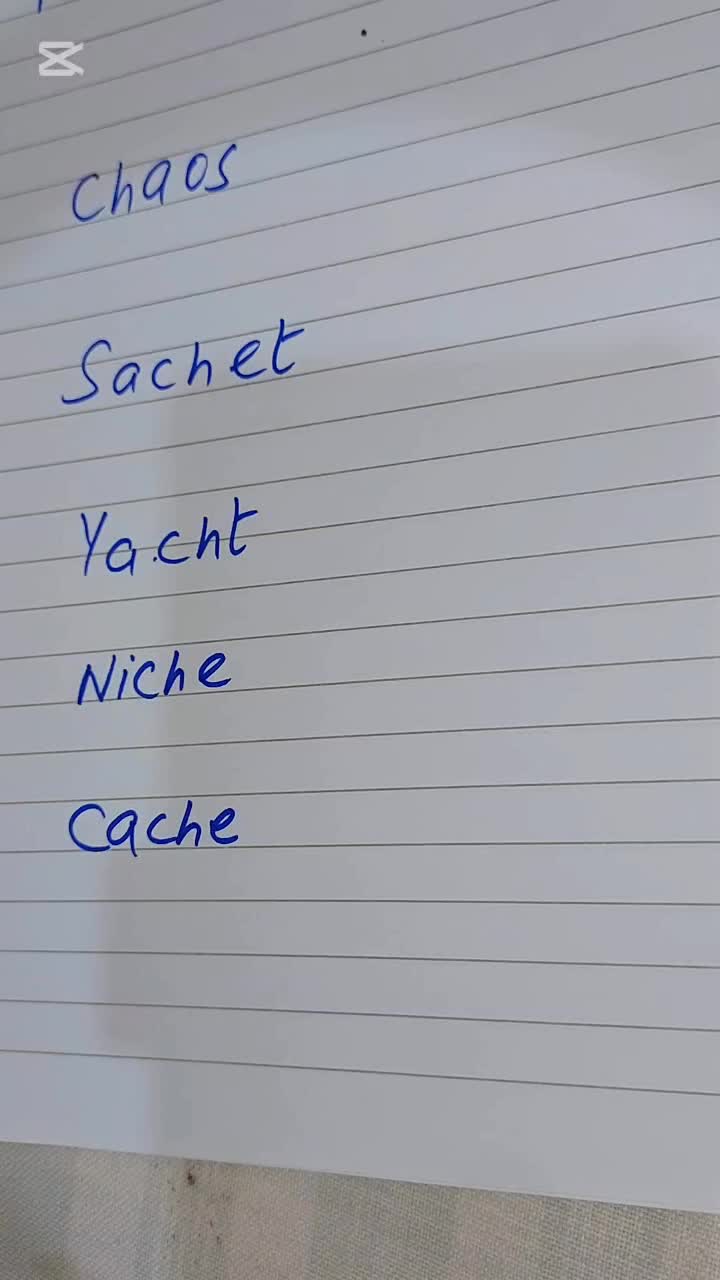 Chaos
Sachet
Yacht
Niche
Cache